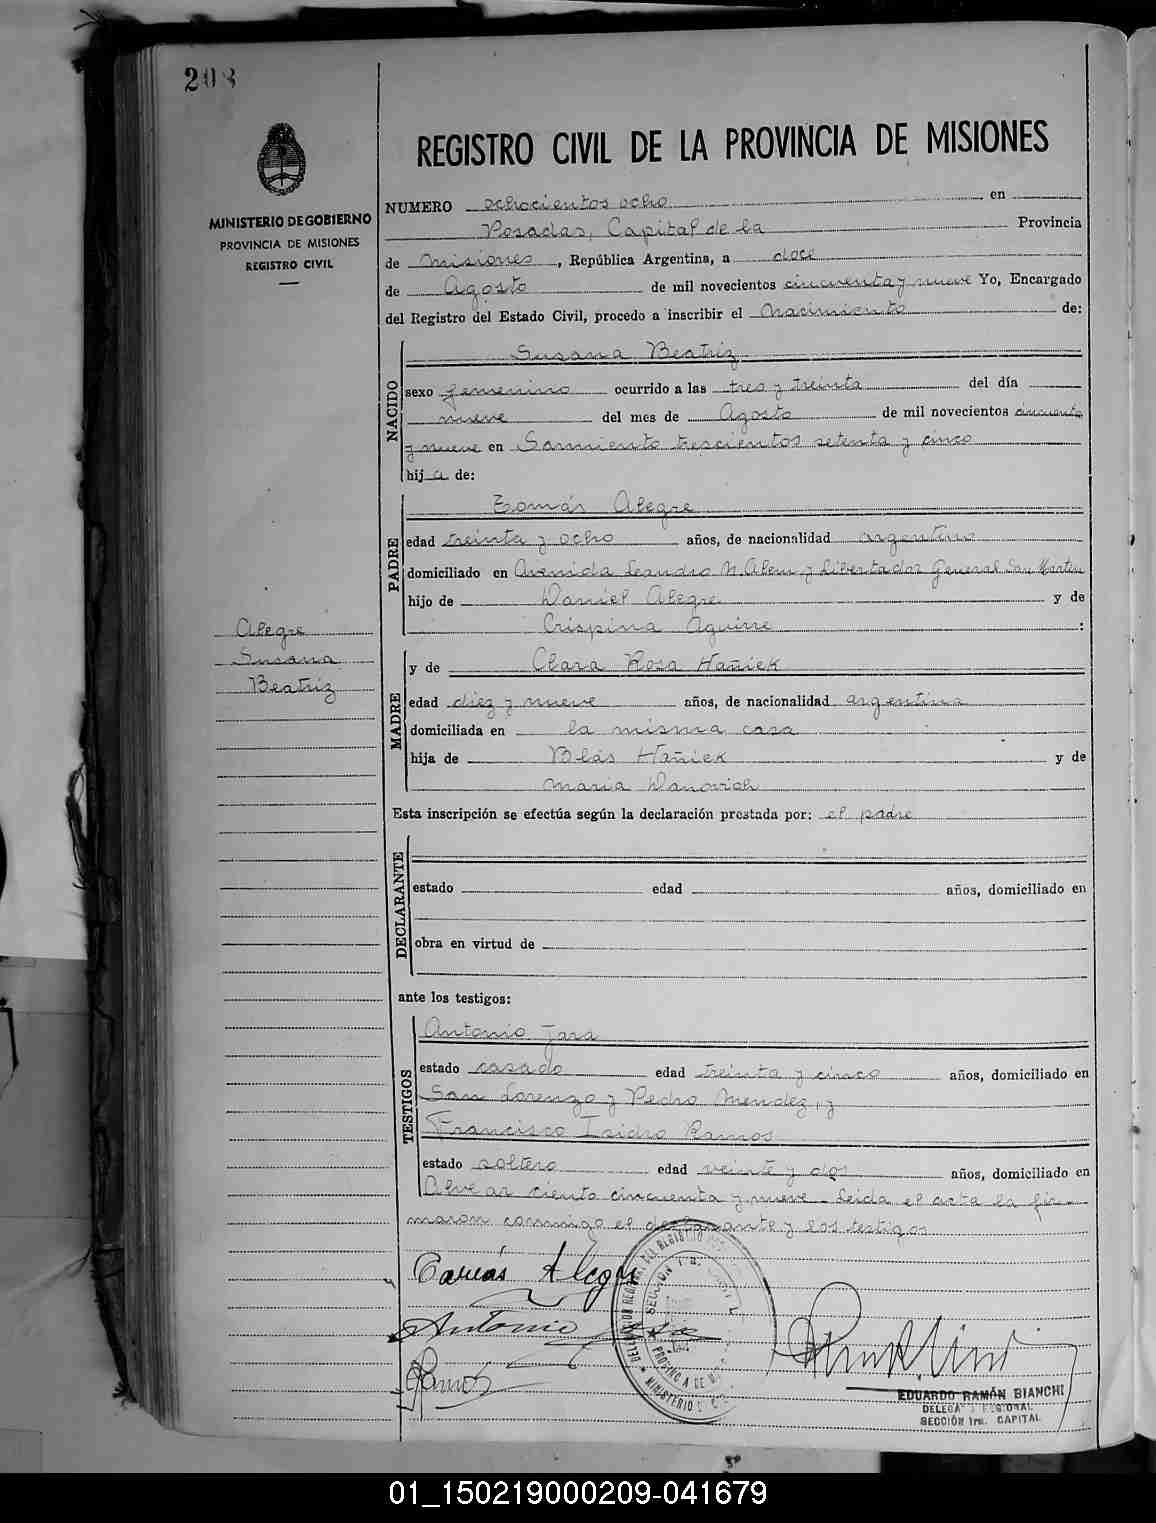 208
REGISTRO CIVIL DE LA PROVINCIA DE MISIONES
MINISTERIO DE GOBIERNO
PROVINCIA DE MISIONES
REGISTRO CIVIL
NUMERO ochocientos ocho en
Posadas, Capital de la Provincia
de Misiones, República Argentina, a doce
de Agosto de mil novecientos cincuenta y nueve Yo, Encargado
del Registro del Estado Civil, procedo a inscribir el Nacimiento de:
NACIDO
Susana Beatriz
sexo femenino ocurrido a las tres y treinta del día
nueve del mes de Agosto de mil novecientos cincuenta
y nueve en Sarmiento trescientos setenta y cinco
hija de:
PADRE
Tomás Alegre
edad treinta y ocho años, de nacionalidad argentino
domiciliado en Avenida Leandro N. Alem y Libertador General San Martin
hijo de Daniel Alegre y de
Crispina Aguirre :
Alegre
Susana
Beatriz
MADRE
y de Clara Rosa Hañiek
edad diez y nueve años, de nacionalidad argentina
domiciliada en la misma casa
hija de Blás Hañiek y de
Maria Danovich
Esta inscripción se efectúa según la declaración prestada por: el padre
DECLARANTE
estado edad años, domiciliado en
obra en virtud de
ante los testigos:
TESTIGOS
Antonio Jara
estado casado edad treinta y cinco años, domiciliado en
San Lorenzo y Pedro Mendez, y
Francisco Isidro Ramos
estado soltero edad veinte y dos años, domiciliado en
Alvear ciento cincuenta y nueve - Leida el acta la fir-
maron conmigo el declarante y los testigos
Tomás Alegre
Antonio Jara
Ramos
EDUARDO RAMÓN BIANCHI
DELEGADO REGIONAL
SECCIÓN 1ra. CAPITAL
01_150219000209-041679